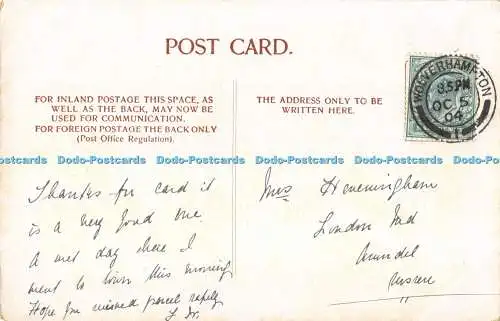 POST CARD.
FOR INLAND POSTAGE THIS SPACE, AS
WELL AS THE BACK, MAY NOW BE
USED FOR COMMUNICATION.
FOR FOREIGN POSTAGE THE BACK ONLY
(Post Office Regulation).
THE ADDRESS ONLY TO BE
WRITTEN HERE.
WOLVERHAMPTON
8.5PM
OC 5
04
Dodo-Postcards Dodo-Postcards Dodo-Postcards Dodo-Postcards Dodo-Postcards
Thanks for card it
is a very good one.
A wet day here I
went to town this morning
Hope you received parcel safely
Miss Heveningham
London Rd
Arundel
Sussex